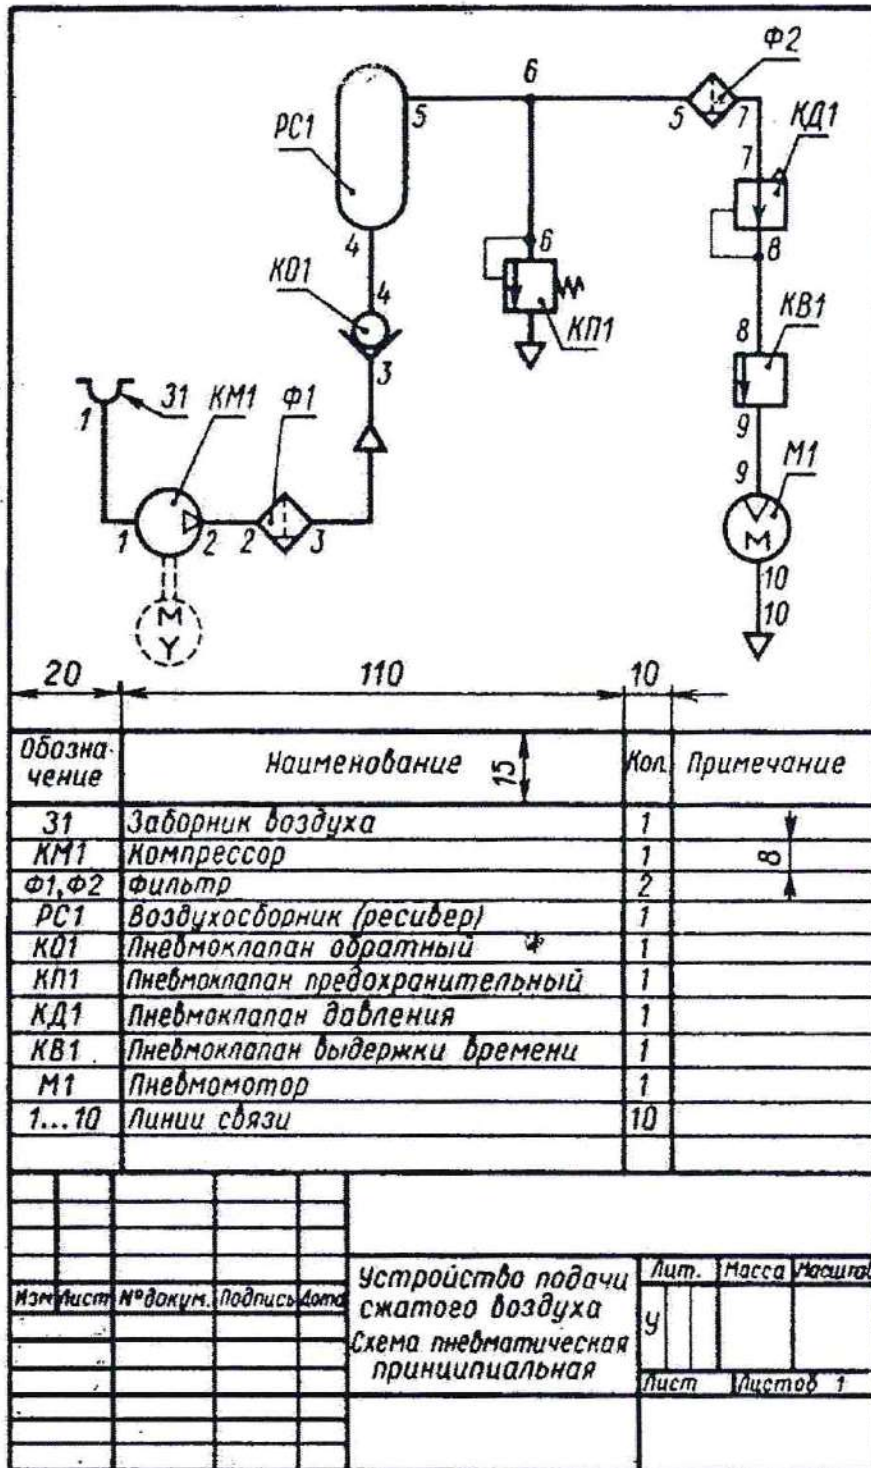 Ф2
6
5
5
7
КД1
РС1
7
4
6
8
КО1
4
КП1
8
КВ1
3
1
З1
КМ1
Ф1
9
9
М1
1
2
2
3
М
10
10
М
У
20
110
10
Обозна-
чение
Наименование
15
Кол.
Примечание
З1 Заборник воздуха 1
КМ1 Компрессор 1 8
Ф1,Ф2 Фильтр 2
РС1 Воздухосборник (ресивер) 1
КО1 Пневмоклапан обратный 1
КП1 Пневмоклапан предохранительный 1
КД1 Пневмоклапан давления 1
КВ1 Пневмоклапан выдержки времени 1
М1 Пневмомотор 1
1...10 Линии связи 10
Изм Лист № докум. Подпись Дата
Устройство подачи
сжатого воздуха
Схема пневматическая
принципиальная
Лит. Масса Масштаб
У
Лист Листов 1